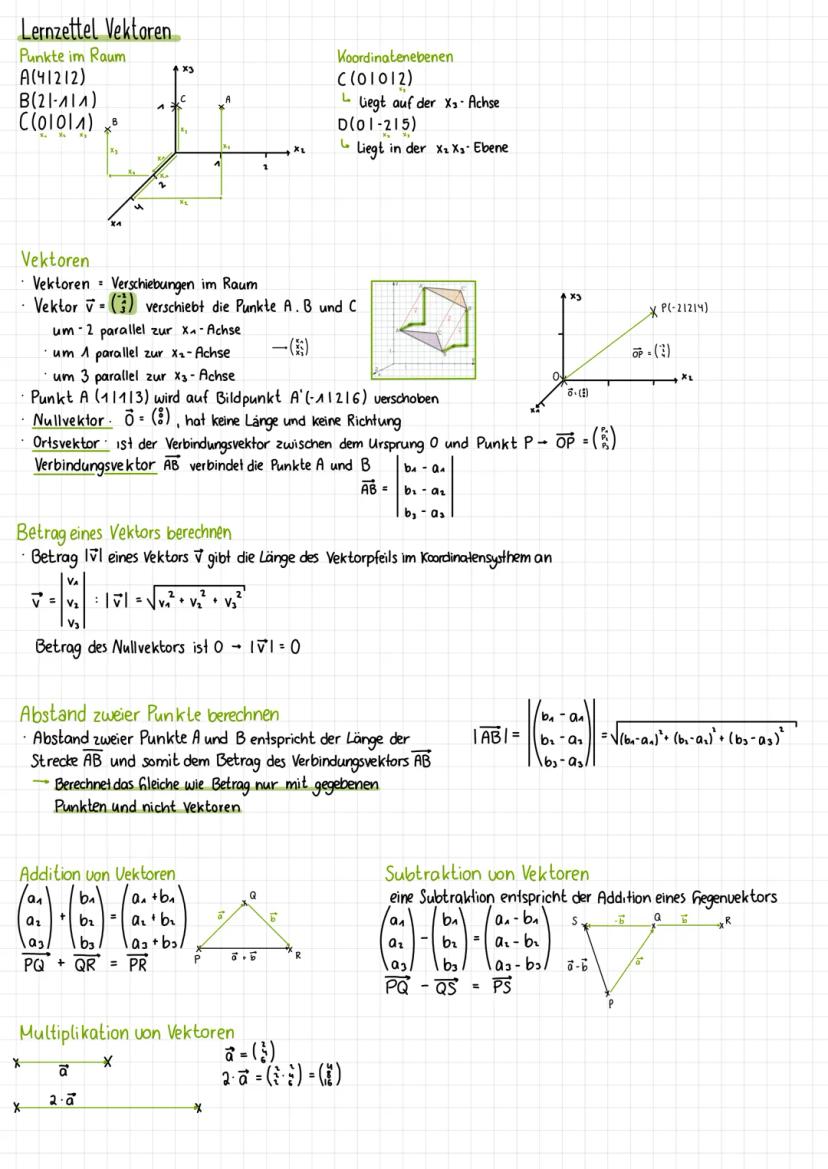 Lernzettel Vektoren
Punkte im Raum
A(4|2|2)
B(2|-1|1)
C(0|0|1)
x₁ x₂ x₃
x₃
1
C
A
B
x₃
x₃
x₃
x₁
x₂
x₁
1
2
x₂
2
4
x₂
x₁
Koordinatenebenen
C(0|0|2)
x₃
↳ liegt auf der x₃-Achse
D(0|-2|5)
x₂ x₃
↳ Liegt in der x₂x₃-Ebene
Vektoren
· Vektoren = Verschiebungen im Raum
· Vektor v⃗ = (-2 1 3) verschiebt die Punkte A. B und C
um -2 parallel zur x₁-Achse
· um 1 parallel zur x₂-Achse → (x₁ x₂ x₃)
· um 3 parallel zur x₃-Achse
· Punkt A (1|1|3) wird auf Bildpunkt A'(-1|2|6) verschoben
· Nullvektor: 0⃗ = (0 0 0), hat keine Länge und keine Richtung
· Ortsvektor: ist der Verbindungsvektor zwischen dem Ursprung O und Punkt P → OP⃗ = (P₁ P₂ P₃)
Verbindungsvektor AB⃗ verbindet die Punkte A und B
AB⃗ = |b₁ - a₁
b₂ - a₂
b₃ - a₃|
x₃
P(-2|2|4)
OP⃗ = (-2 2 4)
O
x₂
0⃗ = (0 0 0)
x₁
Betrag eines Vektors berechnen
· Betrag |v⃗| eines Vektors v⃗ gibt die Länge des Vektorpfeils im Koordinatensysthem an
v⃗ = |v₁ v₂ v₃| : |v⃗| = √v₁² + v₂² + v₃²
Betrag des Nullvektors ist 0 → |v⃗| = 0
Abstand zweier Punkte berechnen
· Abstand zweier Punkte A und B entspricht der Länge der
Strecke AB und somit dem Betrag des Verbindungsvektors AB⃗
→ Berechnet das Gleiche wie Betrag nur mit gegebenen
Punkten und nicht Vektoren
|AB⃗| = |(b₁ - a₁ b₂ - a₂ b₃ - a₃)| = √(b₁-a₁)² + (b₂-a₂)² + (b₃-a₃)²
Addition von Vektoren
(a₁ a₂ a₃) + (b₁ b₂ b₃) = (a₁ + b₁ a₂ + b₂ a₃ + b₃)
PQ⃗ + QR⃗ = PR⃗
Q
a⃗
b⃗
P
a⃗ + b⃗
R
Subtraktion von Vektoren
eine Subtraktion entspricht der Addition eines Gegenvektors
(a₁ a₂ a₃) - (b₁ b₂ b₃) = (a₁ - b₁ a₂ - b₂ a₃ - b₃)
PQ⃗ - QS⃗ = PS⃗
S
-b⃗
Q
b⃗
R
a⃗-b⃗
a⃗
P
Multiplikation von Vektoren
a⃗
2·a⃗
a⃗ = (2 4 6)